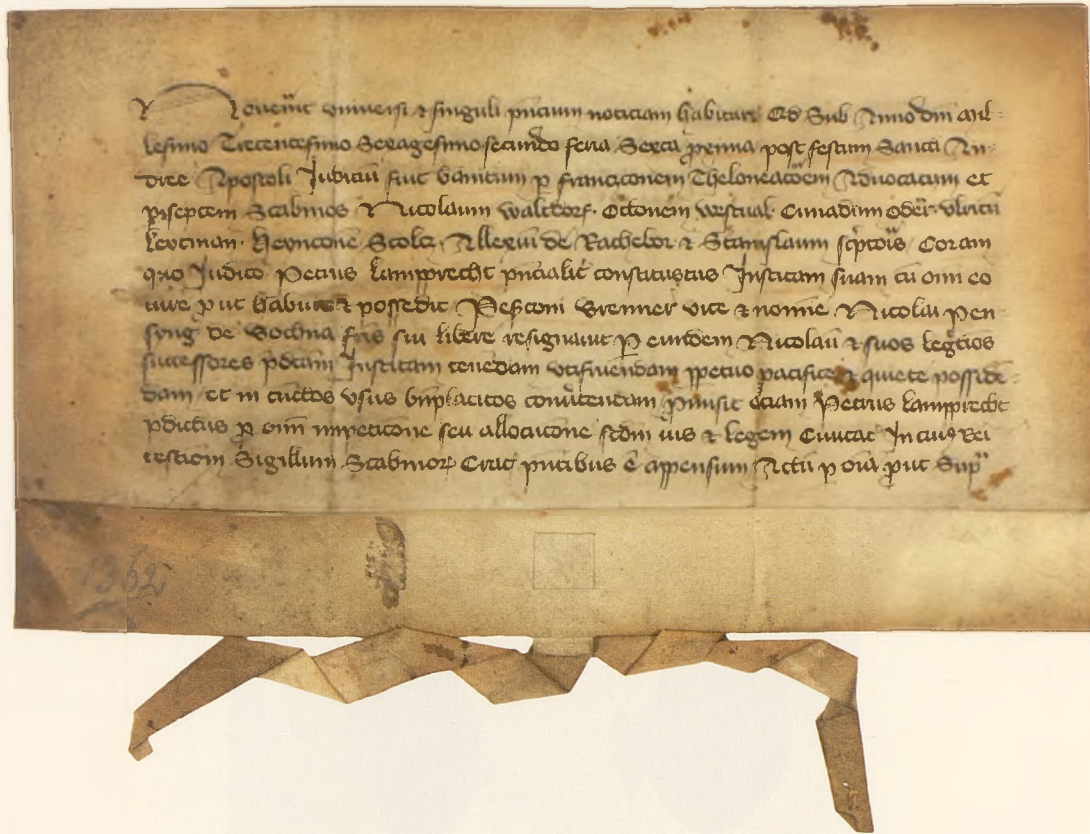 Noverint universi et singuli presencium noticiam habituri Quod Sub Anno domini Mil-
lesimo Trecentesimo Sexagesimo secundo feria Sexta proxima post festum Sancti An-
dree Apostoli Judicium fuit banitum per franczconem Theloneatorem Advocatum et
per septem Scabinos Nicolaum Waltdorf Ottonem Westual Cunadum Oder Ulricum
Heynczonem Scolcz Allexium de Rachebor et Stanislaum scriptoris Coram
quo Judicio Petrus Lampprecht presencialiter constitustus Institam suam cum omni eo
iure prout habuit et possedit Peschconi Brenner vice et nomine Nicolai Pen-
syng de Bochnia fratris sui libere resignavit per eundem Nicolaum et suos legitimos
successores predictam Institam tenendam utifruendam perpetuo pacifice et quiete posside-
dam et in cunctos usus beneplacitos convertendam Promisit eciam Petrus Lampprecht
predictus pro omni impeticone seu allocucone secundum ius et legem Civitatis In cuius Rei
testimonium Sigillum Scabinorum Crac presentibus est appensum Actum per omnia prout Supra
1362